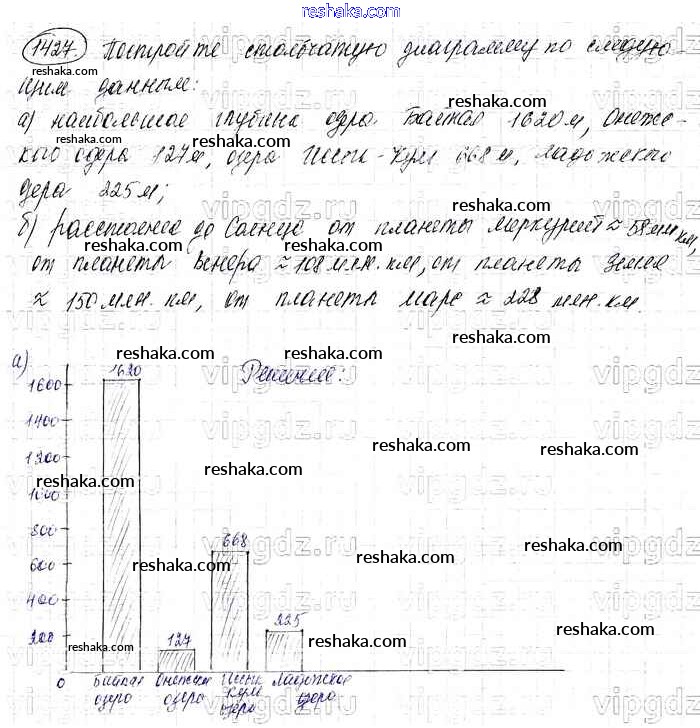 reshaka.com
1427. Постройте столбчатую диаграмму по следую-
щим данным:
а) наибольшая глубина озера Байкал 1620 м, Онежс-
кого озера 127 м, озера Иссык-Кул 668 м, Ладожского
озера 225 м;
б) расстояние до Солнца от планеты Меркурий ≈ 58 млн км,
от планеты Венера ≈ 108 млн. км, от планеты Земля
≈ 150 млн. км, от планеты Марс ≈ 228 млн. км.
а) Решение:
1620
1600
1400
1200
1000
800
668
600
400
225
200
127
0 Байкал Онежское Иссык Ладожское
озеро озеро кул озеро
озеро
reshaka.com
vipgdz.ru